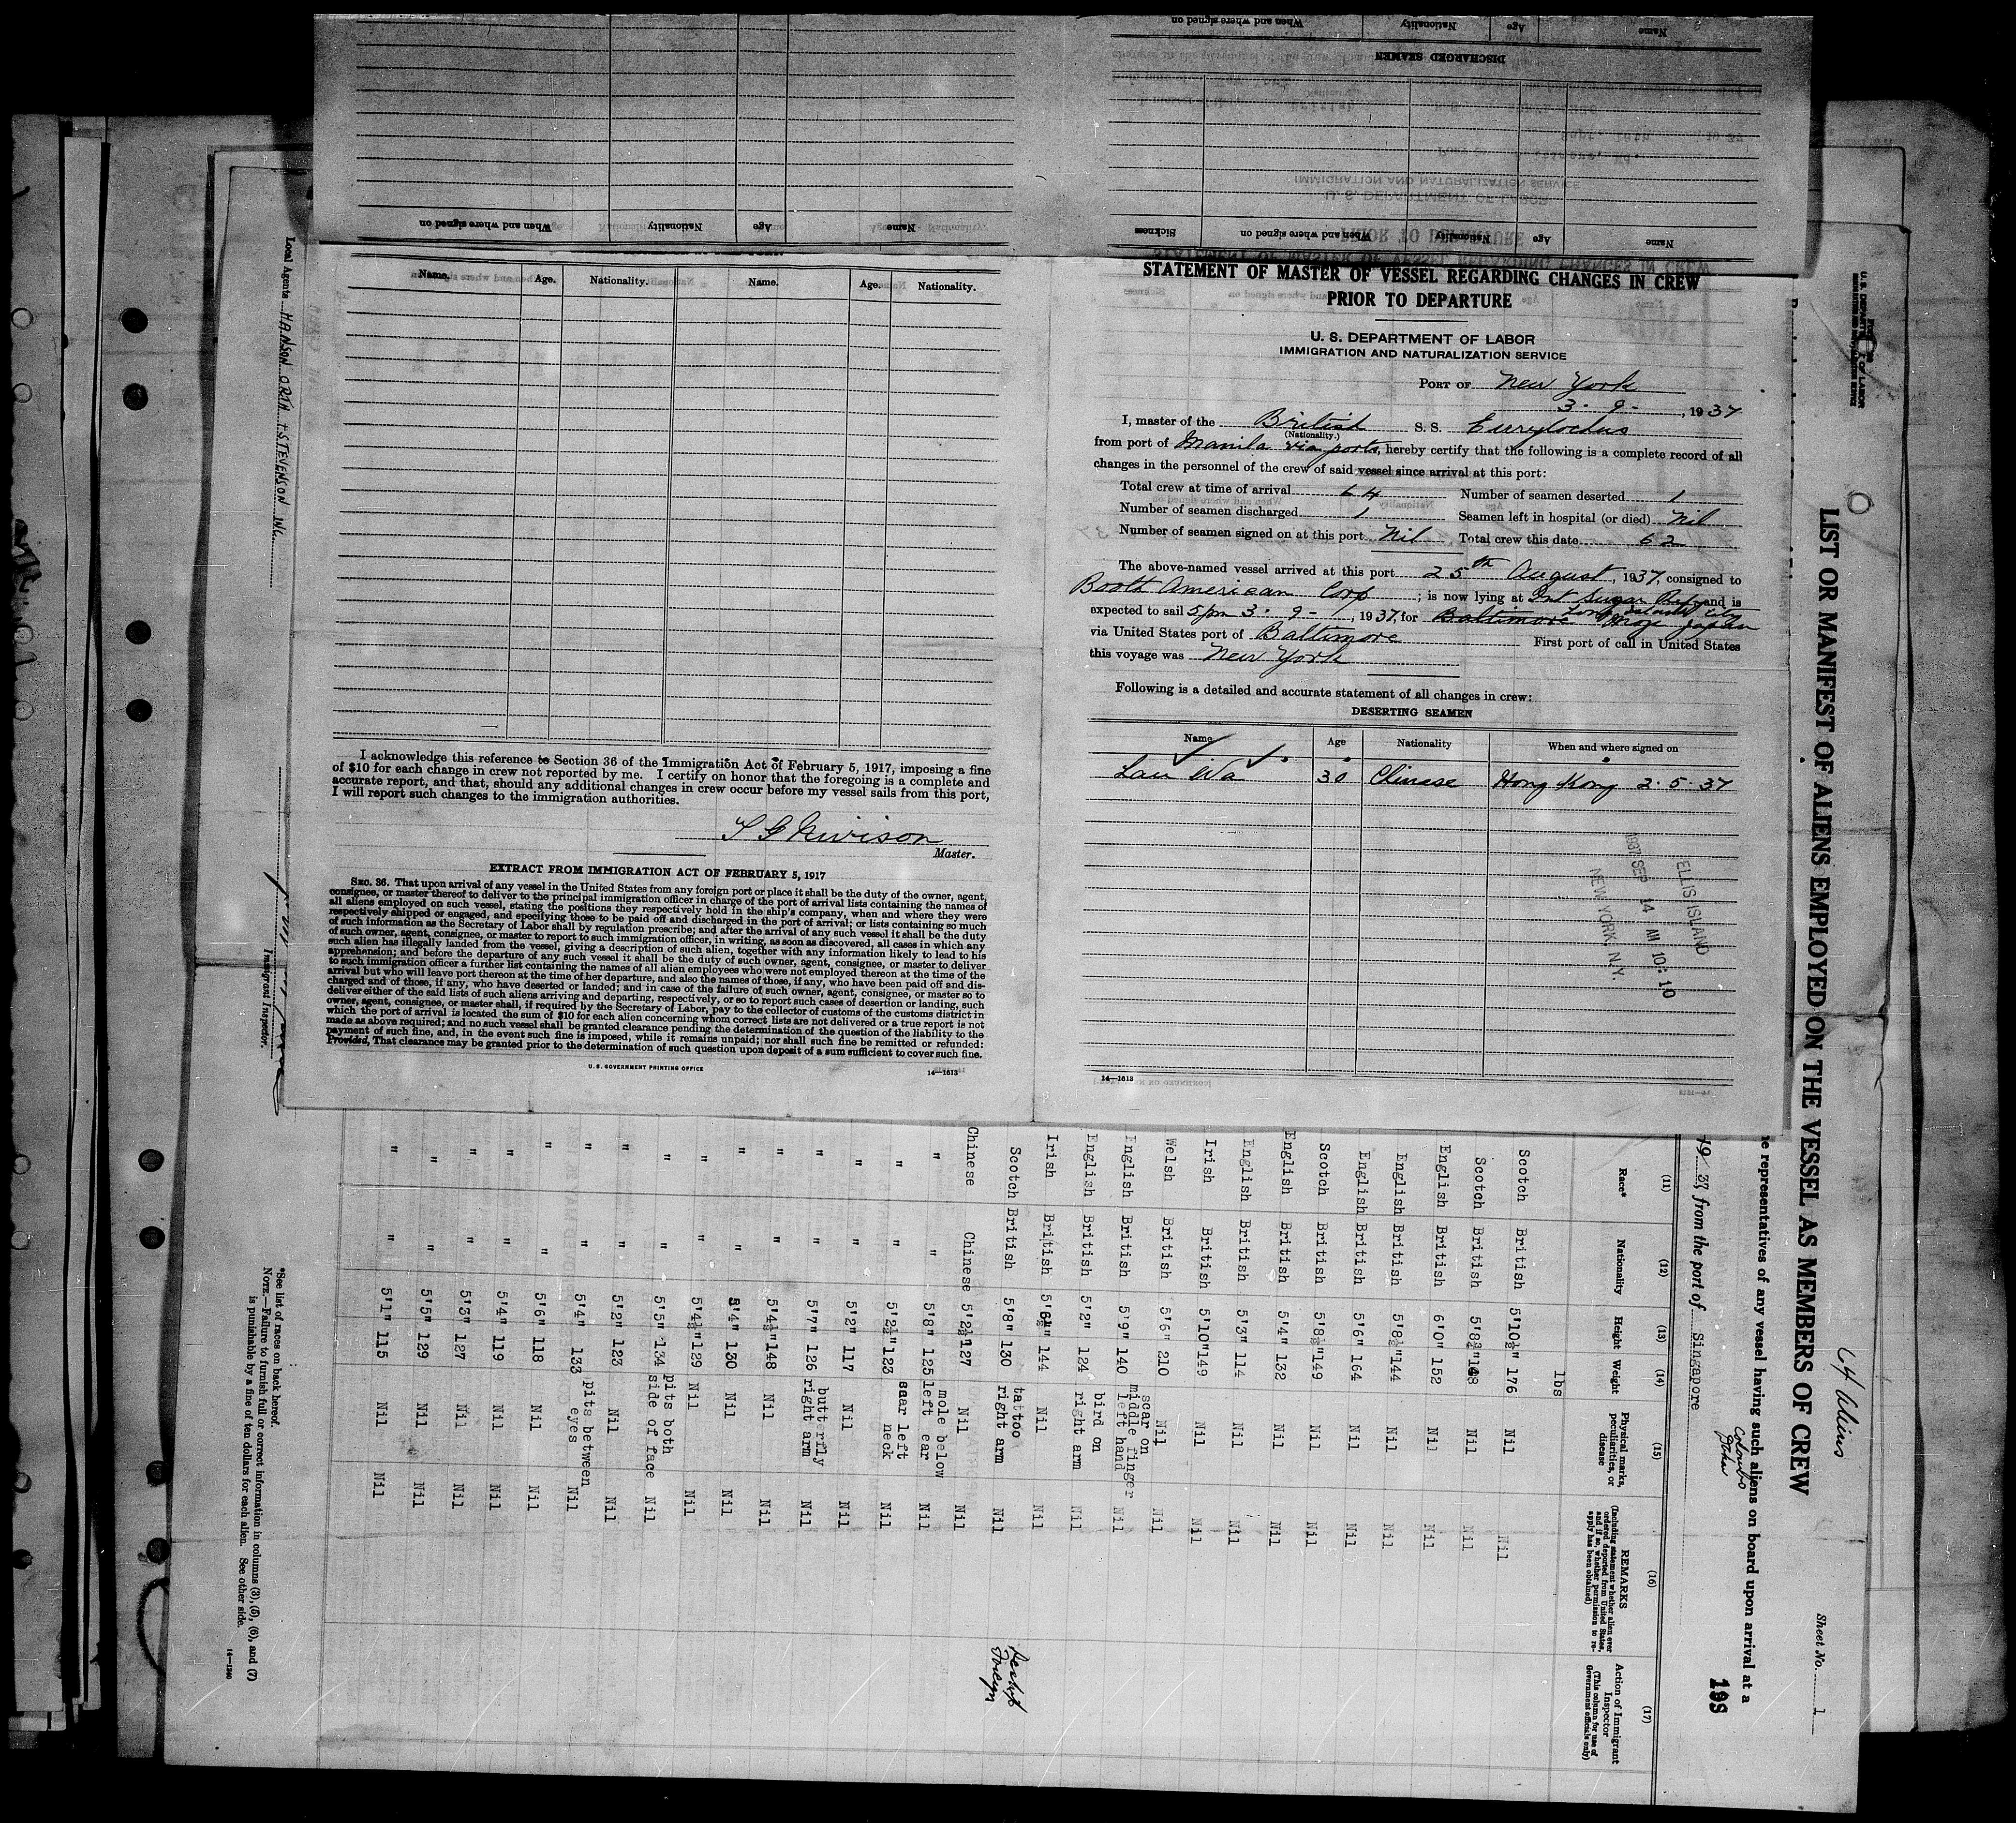 Name. Age. Nationality. Name. Age. Nationality.
I acknowledge this reference to Section 36 of the Immigration Act of February 5, 1917, imposing a fine
of $10 for each change in crew not reported by me. I certify on honor that the foregoing is a complete and
accurate report, and that, should any additional changes in crew occur before my vessel sails from this port,
I will report such changes to the immigration authorities.
Master.
EXTRACT FROM IMMIGRATION ACT OF FEBRUARY 5, 1917
SEC. 36. That upon arrival of any vessel in the United States from any foreign port or place it shall be the duty of the owner, agent,
consignee, or master thereof to deliver to the principal immigration officer in charge of the port of arrival lists containing the names of
all aliens employed on such vessel, stating the positions they respectively hold in the ship's company, when and where they were
respectively shipped or engaged, and specifying those to be paid off and discharged in the port of arrival; or lists containing so much
of such information as the Secretary of Labor shall by regulation prescribe; and after the arrival of any such vessel it shall be the duty
of such owner, agent, consignee, or master to report to such immigration officer, in writing, as soon as discovered, all cases in which any
such alien has illegally landed from the vessel, giving a description of such alien, together with any information likely to lead to his
apprehension; and before the departure of any such vessel it shall be the duty of such owner, agent, consignee, or master to deliver
to such immigration officer a further list containing the names of all alien employees who were not employed thereon at the time of the
arrival but who will leave port thereon at the time of her departure, and also the names of those, if any, who have been paid off and dis-
charged and of those, if any, who have deserted or landed; and in case of the failure of such owner, agent, consignee, or master so to
deliver either of the said lists of such aliens arriving and departing, respectively, or so to report such cases of desertion or landing, such
owner, agent, consignee, or master shall, if required by the Secretary of Labor, pay to the collector of customs of the customs district in
which the port of arrival is located the sum of $10 for each alien concerning whom correct lists are not delivered or a true report is not
made as above required; and no such vessel shall be granted clearance pending the determination of the question of the liability to the
payment of such fine, and, in the event such fine is imposed, while it remains unpaid; nor shall such fine be remitted or refunded:
Provided, That clearance may be granted prior to the determination of such question upon deposit of a sum sufficient to cover such fine.
U. S. GOVERNMENT PRINTING OFFICE 14—1613
STATEMENT OF MASTER OF VESSEL REGARDING CHANGES IN CREW
PRIOR TO DEPARTURE
U. S. DEPARTMENT OF LABOR
IMMIGRATION AND NATURALIZATION SERVICE
PORT OF New York
3-9-, 1937
I, master of the British S. S. Eurylochus
(Nationality.)
from port of Manila via ports, hereby certify that the following is a complete record of all
changes in the personnel of the crew of said vessel since arrival at this port:
Total crew at time of arrival 64 Number of seamen deserted 1
Number of seamen discharged 1 Seamen left in hospital (or died) Nil
Number of seamen signed on at this port Nil Total crew this date 62
The above-named vessel arrived at this port 25th August, 1937, consigned to
Booth American Corp; is now lying at Int Sugar Ref and is
Long Island City
expected to sail 5pm 3-9-, 1937, for Baltimore Moji Japan
via United States port of Baltimore First port of call in United States
this voyage was New York
Following is a detailed and accurate statement of all changes in crew:
DESERTING SEAMEN
Name Age Nationality When and where signed on
Lau Wa 30 Chinese Hong Kong 2-5-37
ELLIS ISLAND
1937 SEP 14 AM 10:10
NEW YORK N.Y.
14—1613
DISCHARGED SEAMEN
Name Age Nationality When and where signed on
Name Age Nationality When and where signed on Sickness
Name Age Nationality When and where signed on
64 Aliens
Sheet No. 1
LIST OR MANIFEST OF ALIENS EMPLOYED ON THE VESSEL AS MEMBERS OF CREW
U. S. DEPARTMENT OF LABOR
representatives of any vessel having such aliens on board upon arrival at a
Colombo
19 37, from the port of Singapore
198
(11) (12) (13) (14) (15) (16) (17)
Race* Nationality Height Weight Physical marks, peculiarities, or disease REMARKS (Including statement whether alien ever ordered deported from United States, and if so, whether permission to re-apply has been obtained) Action of Immigrant Inspector (This column for use of Government officials only)
lbs
Scotch British 5'10½" 176 Nil Nil
Scotch British Nil Nil
English British 6'0" 152 Nil Nil
English British 5'8½" 144 Nil Nil
English British 5'6" 164 Nil Nil
Scotch British 5'8½" 149 Nil Nil
English British 5'4" 132 Nil Nil
English British 5'3" 114 Nil Nil
Irish British 5'10" 149 Nil Nil
Welsh British 5'6" 210 Nil Nil
English British 5'9" 140 scar on middle finger left hand Nil
English British 5'2" 124 bird on right arm Nil
Irish British 144 Nil Nil
Scotch British 5'8" 130 tattoo right arm Nil
Chinese Chinese 5'2½" 127 Nil Nil
" " 5'8" 125 mole below left ear Nil
" " 5'2½" 123 scar left neck Nil
" " 5'2" 117 Nil Nil
" " 5'7" 126 butterfly right arm Nil
" " 5'4½" 148 Nil Nil
" " 5'4" 130 Nil Nil
" " 5'4½" 129 Nil Nil
" " 5'5" 134 pits both side of face Nil
" " 5'2" 123 Nil Nil
" " 5'4" 133 pits between eyes Nil
" " 5'6" 118 Nil Nil
" " 5'4" 119 Nil Nil
" " 5'3" 127 Nil Nil
" " 5'5" 129 Nil Nil
" " 5'1" 115 Nil Nil
*See list of races on back hereof.
NOTE.—Failure to furnish full or correct information in columns (3), (5), (6), and (7)
is punishable by a fine of ten dollars for each alien. See other side.
14—1240
Local Agents HANSON ORTH + STEVENSON INC.
Immigrant Inspector.